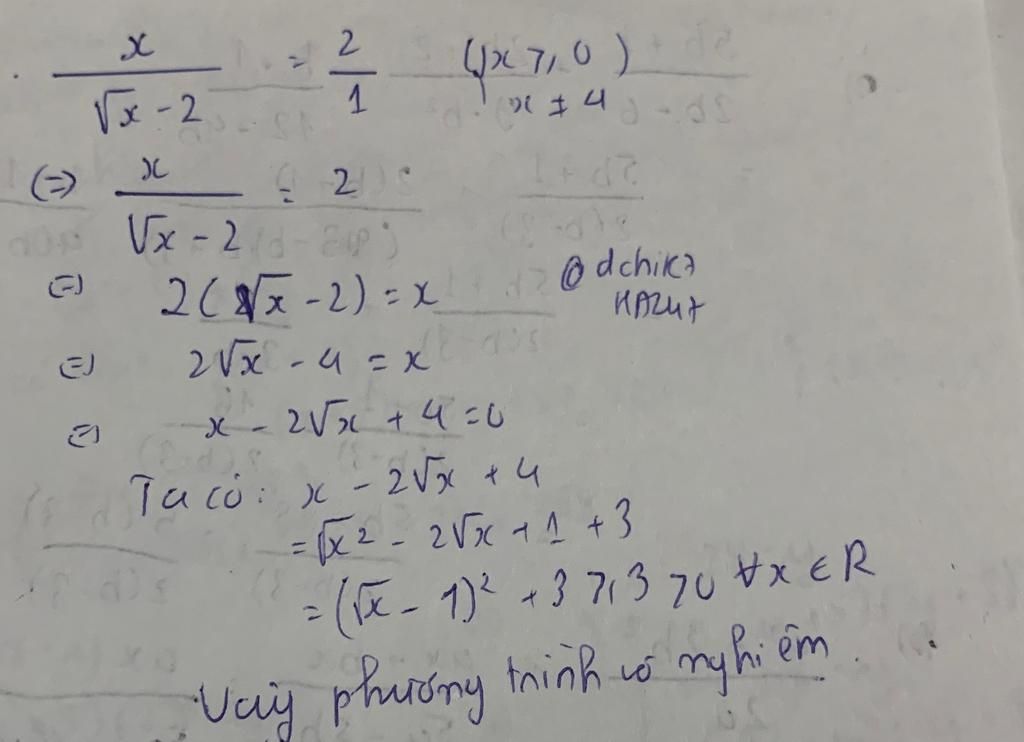 x/(√x - 2) = 2/1 (x ≥ 0, x ≠ 4)
(=) x/(√x - 2) = 2
(=) 2(√x - 2) = x
@dchik7
HAZU7
(=) 2√x - 4 = x
(=) x - 2√x + 4 = 0
Ta có: x - 2√x + 4
= √x² - 2√x + 1 + 3
= (√x - 1)² + 3 ≥ 3 > 0 ∀x ∈ R
Vậy phương trình vô nghiệm.